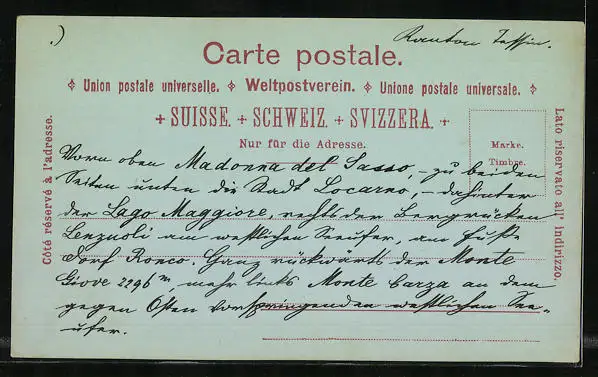 .)
Kanton Tessin.
Carte postale.
Union postale universelle. Weltpostverein. Unione postale universale.
+ SUISSE. + SCHWEIZ. + SVIZZERA. +
Nur für die Adresse.
Marke.
Timbre.
Côté réservé à l'adresse.
Lato riservato all' indirizzo.
Vorn oben Madonna del Sasso, zu beiden
Seiten unten die Stadt Locarno, – dahinter
der Lago Maggiore, rechts der Bergrücken
Lenzuoli am westlichen Seeufer, am Fuße
Dorf Ronco. Ganz rückwärts der Monte
Giove 2296 m, mehr links Monte Carza an dem
gegen Osten vorspringenden westlichen See-
ufer.